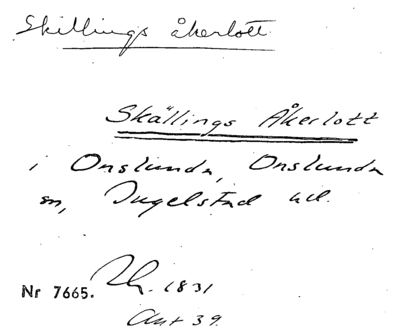 Skillings åkerlott
Skällings Åkerlott
i Onslunda, Onslunda
sn, Ingelstad hd.
Nr 7665. 1831
Akt 39.